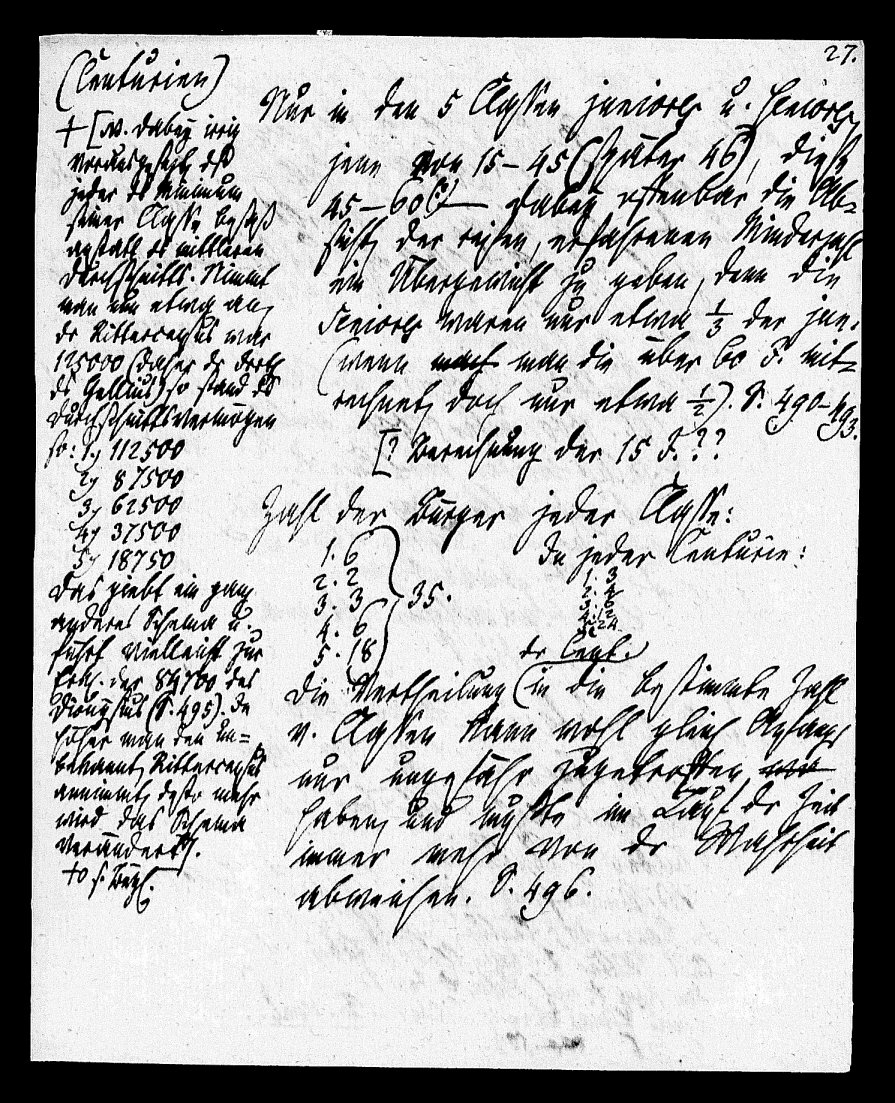 27.
(Centurien)
+ [NB. Dabey irrig
vorausgesetzt daß
jeder das Minimum
seiner Classe besaß
anstatt des mittleren
Durchschnitts. Nimmt
man nun etwa an,
der Rittercensus war
125000 (daher der
des Gellius) so stand das
Durchschnittsvermögen
so: 1, 112500
2, 87500
3, 62500
4, 37500
5, 18750
Das giebt ein ganz
anderes Schema u.
führt vielleicht zur
der 84700 des
Dionysius (S. 495). Je
höher man den un=
bekannten Rittercensus
annimmt, desto mehr
wird das Schema
verändert].
Nur in den 5 Classen juniores u. seniores,
jene von 15–45 (später 46), diese
45–60(?)— Dabey offenbar die Ab=
sicht, der reifen, erfahrenen Minderzahl
ein Übergewicht zu geben, denn die
Seniores waren nur etwa 1/3 der jun.
(wenn man die über 60 J. mit=
rechnet, doch nur etwa 1/2). S. 490–493.
[? Berechnung der 15 J.??
Zahl der Bürger jeder Classe:
1. 6
2. 2
3. 3
4. 6
5. 18
35.
In jeder Centurie:
1. 3
2. 4
3. 6
4. 12
5. 24
der Cent.
Die Vertheilung in die bestimmte Zahl
v. Classen kann wohl gleich Anfangs
nur ungefähr zugetroffen
haben, und mußte im Lauf der Zeit
immer mehr von der Wahrheit
abweichen. S. 496.